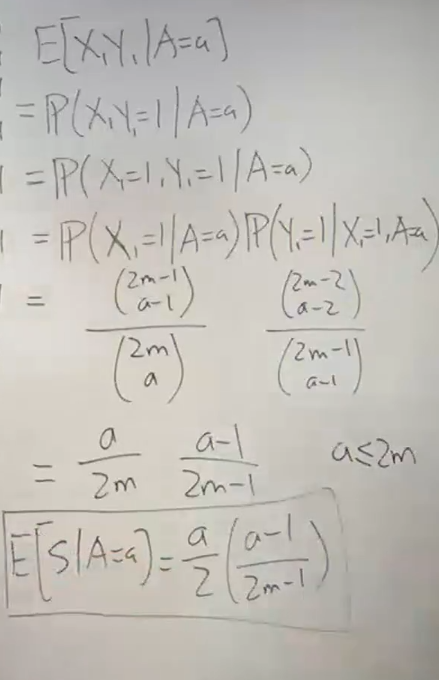 E[X₁Y₁|A=a]
= P(X₁Y₁=1|A=a)
= P(X₁=1,Y₁=1|A=a)
= P(X₁=1|A=a)P(Y₁=1|X₁=1,A=a)
= (2m-1 a-1)/(2m a) (2m-2 a-2)/(2m-1 a-1)
= a/2m a-1/2m-1 a≤2m
E[S|A=a)=a/2(a-1/2m-1)